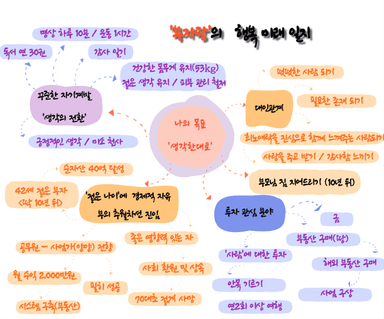 의 행복 미래 일지
명상 하루 10분 / 운동 1시간
독서 연 30권
감사 일기
꾸준한 자기계발
'생각의 전환'
긍정적인 생각 / 미소 천사
건강한 몸무게 유지(53kg)
젊은 생각 유지 / 피부 관리 철저
나의 목표
'생각한대로'
대인관계
떳떳한 사람 되기
필요한 존재 되기
희노애락을 진심으로 함께 느껴주는 사람되기
사랑을 주고 받기 / 감사함 느끼기
부모님 집 지어드리기 (10년 뒤)
'젊은 나이'에 경제적 자유
부의 추월차선 진입
순자산 40억 달성
42세 젊은 부자
(딱 10년 뒤)
공무원 - 사업가(임양) 전향
월 수익 2,000만원
시스템 구축(부동산)
일찍 성공
좋은 영향력 있는 자
사회 환원 및 상속
70대초 정계 사망
투자 관심 분야
'사람'에 대한 투자
안목 기르기
연2회 이상 여행
금
부동산 구매(땅)
해외 부동산 구매
사업 구상